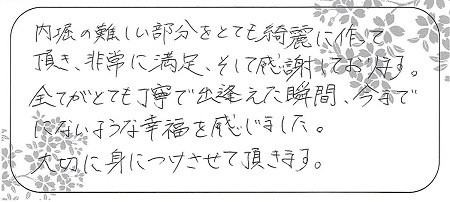 内堀の難しい部分をとても綺麗に作って
頂き、非常に満足、そして感謝しております。
全てがとても丁寧で出逢えた瞬間、今まで
にないような幸福を感じました。
大切に身につけさせて頂きます。